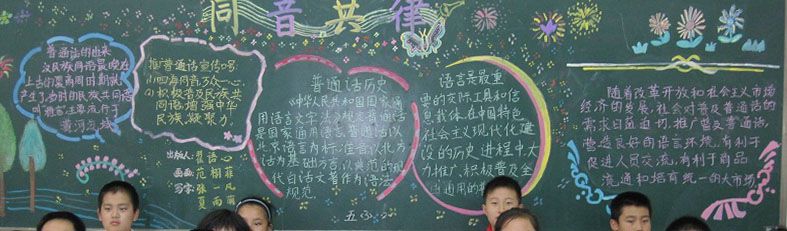 同音共律
普通话的由来
汉民族同语最晚在
上古的夏商周时期就产
黄河流域
推广普通话宣传口号
四海同音万众一心
积极普及民族共
同语增强中华
民族凝聚力
出版人：
画画：范栩菲
写字：张一凡
夏雨萌
普通话历史
《中华人民共和国国家通
用语言文字法》规定普通话
是国家通用语言。普通话以
北京语言内标准音以北方
话为基础方言，以典范的现
代白话文著作为语法
规范
五
语言是最重
要的交际工具和信
息载体。在中国特色
社会主义现代化建
设的历史进程中大
力推广，积极普及全
国通用的普
随着改革开放和社会主义市场
经济的发展，社会对普及普通话的
需求日益迫切。推广普及普通话，
营造良好的语言环境，有利于
促进人员交流，有利于商品
流通和培育统一的大市场。